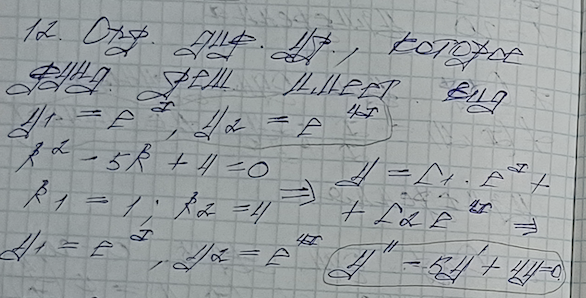 12. Опр. диф. ур., которое
фунд. реш. имеет вид
y1 = e^x, y2 = e^4x
k² - 5k + 4 = 0
k1 = 1; k2 = 4 => y = C1 · e^x +
+ C2 e^4x =>
y1 = e^x, y2 = e^4x y'' = 5y' + 4y=0.